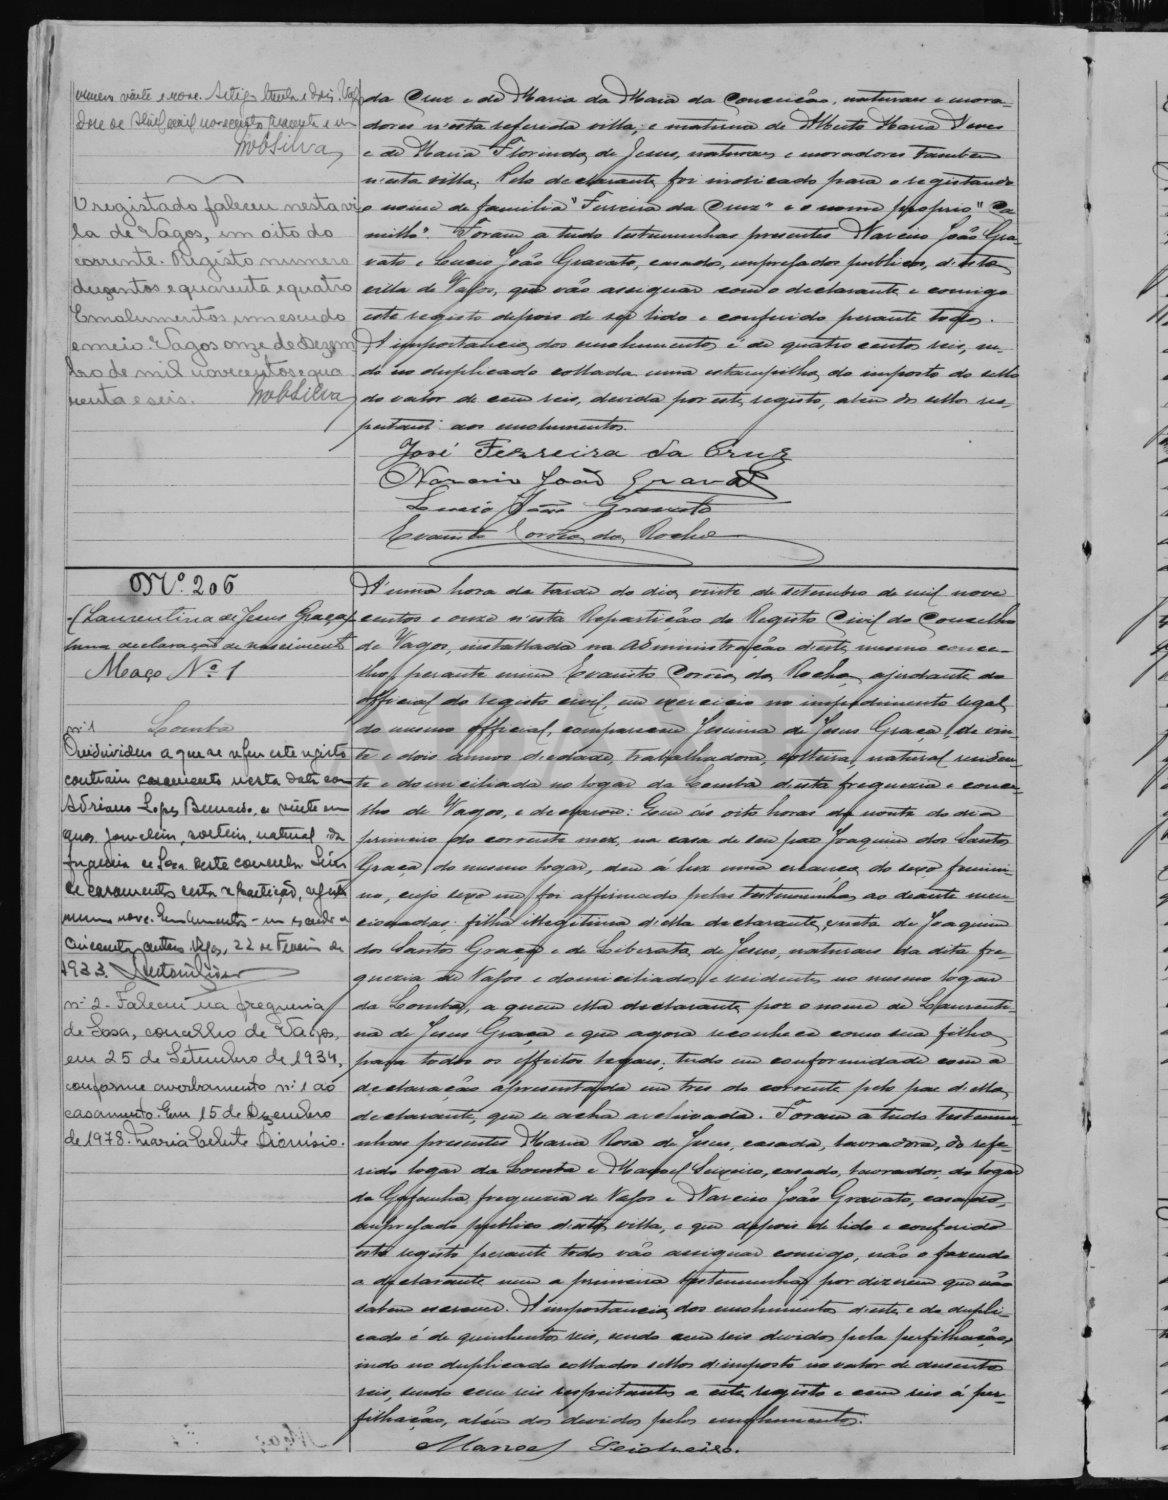 numero vinte e nove. Artigo trinta e dois. Vagos
doze de Abril mil novecentos quarenta e um
MobSilva
O registado faleceu nesta vi
la de Vagos, em oito do
corrente. Registo numero
duzentos e quarenta e quatro
Emolumentos um escudo
e meio. Vagos onze de Dezem
bro de mil novecentos e qua
renta e seis. MobSilva
da Cruz e de Maria da Conceição, naturaes e mora-
dores n'esta referida villa; e materna de Alberto Maria Neves
e de Maria Florinda de Jesus, naturaes e moradores tambem
n'esta villa. Pelo declarante foi indicado para o registando
o nome de familia "Ferreira da Cruz" e o nome proprio "Ca
millo". Foram a tudo testemunhas presentes Narciso João Gra-
vato e Lucio João Gravato, casados, empregados publicos, d'esta
villa de Vagos, que vão assignar com o declarante e comigo
este registo depois de ser lido e conferido perante todos.
A importancia dos emolumentos é de quatrocentos reis, in-
do no duplicado collada uma estampilha do imposto do sello
do valor de cem reis, devida por este registo, alem dos sellos res-
peitantes aos emolumentos.
José Ferreira da Cruz
Narciso João Gravato
Lucio João Gravato
Evaristo Corrêa da Rocha
Nº. 206
(Laurentina de Jesus Graça)
uma declaração de nascimento
Maço Nº 1
Lomba
nº 1
O individuo a que se refere este registo
contraiu casamento nesta data com
Adriano Lopes Bernardo, de vinte e
quatro, jornaleiro, solteiro, natural da
freguesia de Sosa deste concelho. Livro
de casamentos desta repartição, registo
numero nove. Emolumentos - um escudo e
cincoenta centavos. Vagos, 22 de Fevereiro de
1933.
nº 2 - Faleceu na freguesia
de Sosa, concelho de Vagos,
em 25 de Setembro de 1934,
conforme averbamento nº 1 ao
casamento. Em 15 de Dezembro
de 1978. Maria Celeste Dionísio.
A' uma hora da tarde do dia vinte de setembro de mil nove
centos e onze n'esta Repartição do Registo Civil do Concelho
de Vagos, installada na Administração d'este mesmo conce-
lho, perante mim Evaristo Corrêa da Rocha, ajudante do
official do registo civil, em exercicio no impedimento legal
do mesmo official, compareceu Jesuina de Jesus Graça, de vin-
te e dois annos de edade, trabalhadora, solteira, natural residen-
te e domiciliada no logar da Lomba d'esta freguezia e conce-
lho de Vagos, e declarou: Que ás oito horas da noute do dia
primeiro do corrente mez, na casa de seu pae Joaquim dos Santos
Graça, do mesmo logar, deu á luz uma creança do sexo femini-
no, cujo sexo me foi affirmado pelas testemunhas ao deante men-
cionadas, filha illegitima d'ella declarante, e neta de Joaquim
dos Santos Graça e de Liberata de Jesus, naturaes da dita fre-
guezia de Vagos e domiciliados e residentes no mesmo logar
da Lomba, a quem ella declarante poz o nome de Laurenti-
na de Jesus Graça e que agora reconhece como sua filha
para todos os effeitos legaes; tudo em conformidade com a
declaração apresentada em tres do corrente pelo pae d'ella
declarante, que se acha archivada. Foram a tudo testemu-
nhas presentes Maria Rosa de Jesus, casada, lavradora, do refe-
rido logar da Lomba e Manoel Seixeiro, casado, lavrador, do logar
da Gafanha, freguezia de Vagos e Narciso João Gravato, casado,
empregado publico d'esta villa, e que depois de lido e conferido
este registo perante todos vão assignar comigo, não o fazendo
a declarante nem a primeira testemunha por dizerem que não
sabem escrever. A importancia dos emolumentos d'este e do dupli-
cado é de quinhentos reis, sendo cem reis devidos pela perfilhação,
indo no duplicado collados sellos d'imposto no valor de duzentos
reis, sendo cem reis respeitantes a este registo e cem reis á per-
filhação, além dos devidos pelos emolumentos.
Manoel Seicheiro.